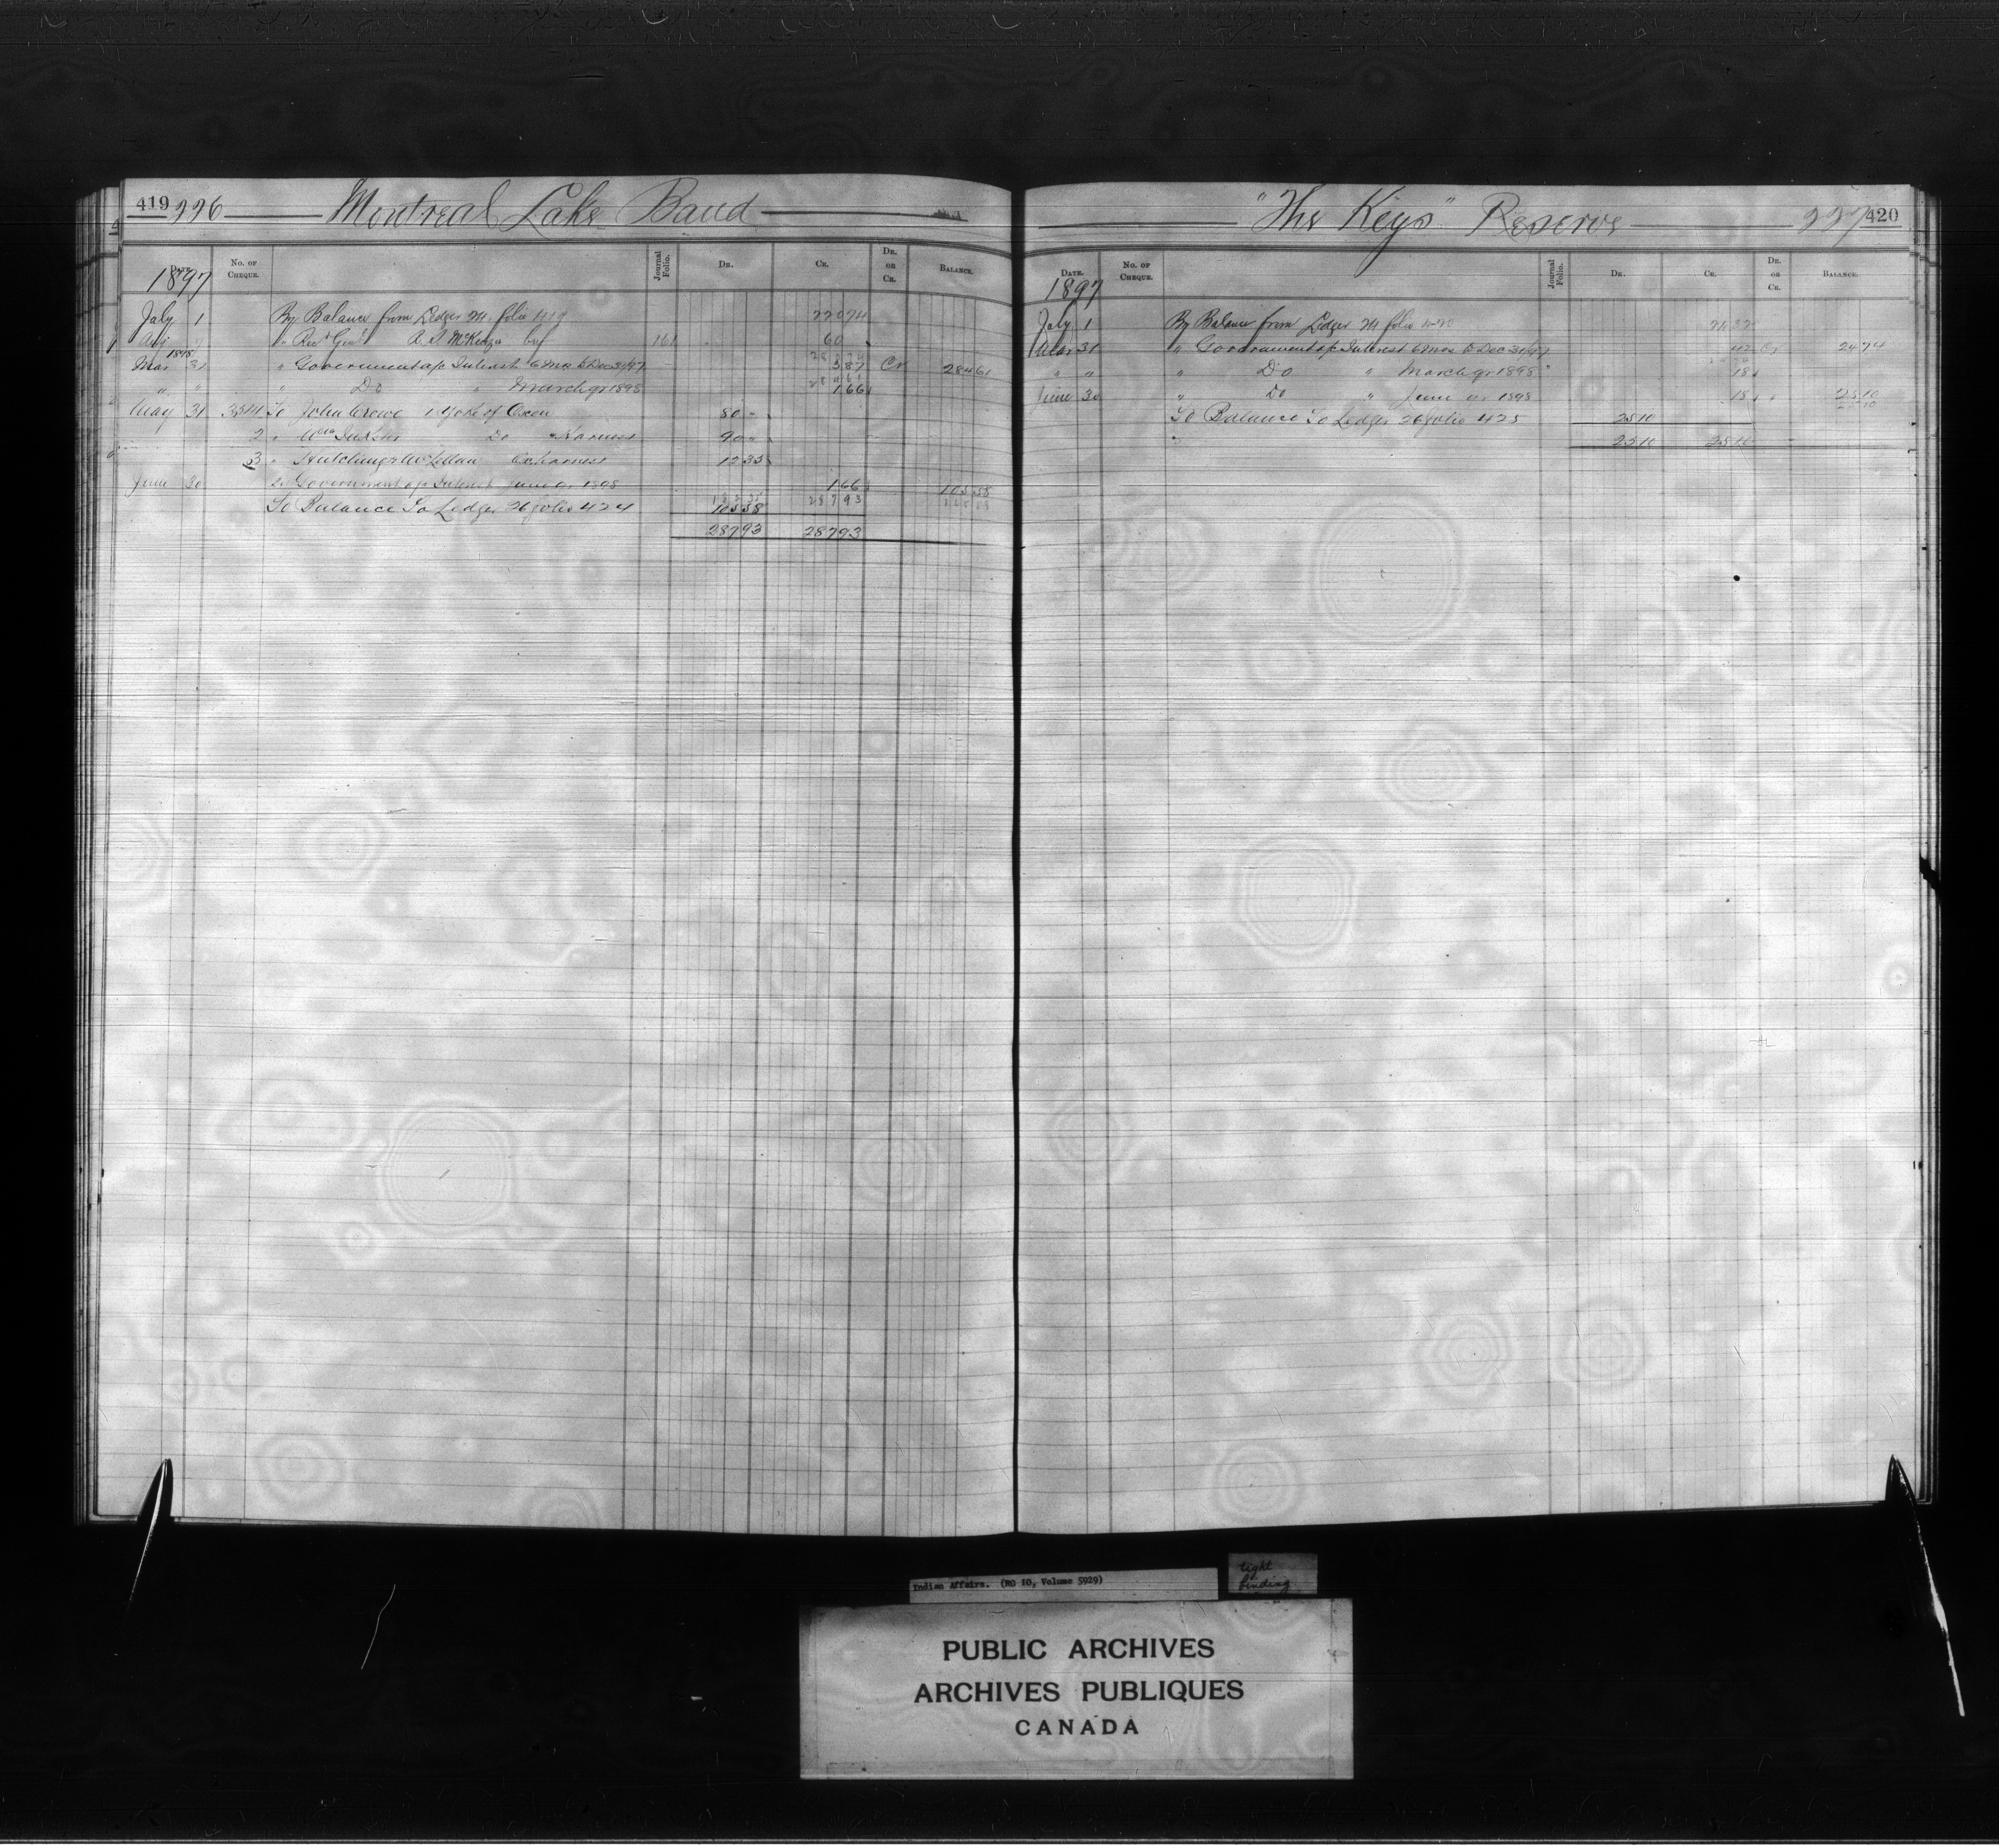 419 226 Montreal Lake Band
DATE. No. OF CHEQUE. Journal Folio. DR. CR. DR. OR CR. BALANCE.
1897
July 1 By Balance from Ledger 24 folio 419 220 74
" Recr Genl McKenzie 161 60
1898
Mar 31 " Government a/c Interest 6 Mos to Dec 31/97 3 87 Cr 284 61
" " " Do " March qr 1898 1 66
May 31 To John Crowe 1 Yoke of Oxen 80 -
2 " Do " Harness 90 -
3 " Hutchings McLellan Ox harness 12 35
June 30 Government a/c Interest June qr 1898 1 66 105 58
To Balance To Ledger 26 folio 424 105 58
287 93 287 93
"The Keys" Reserve 227 420
DATE. No. OF CHEQUE. Journal Folio. DR. CR. DR. OR CR. BALANCE.
1897
July 1 By Balance from Ledger 24 folio 420 24 32
Mar 31 " Government a/c Interest 6 Mos to Dec 31/97 42 Cr 24 74
" " " Do " March qr 1898 18
June 30 " Do " June qr 1898 18 " 25 10
To Balance To Ledger 26 folio 425 25 10
25 10 25 10
Indian Affairs. (RG 10, Volume 5929)
tight
binding
PUBLIC ARCHIVES
ARCHIVES PUBLIQUES
CANADA